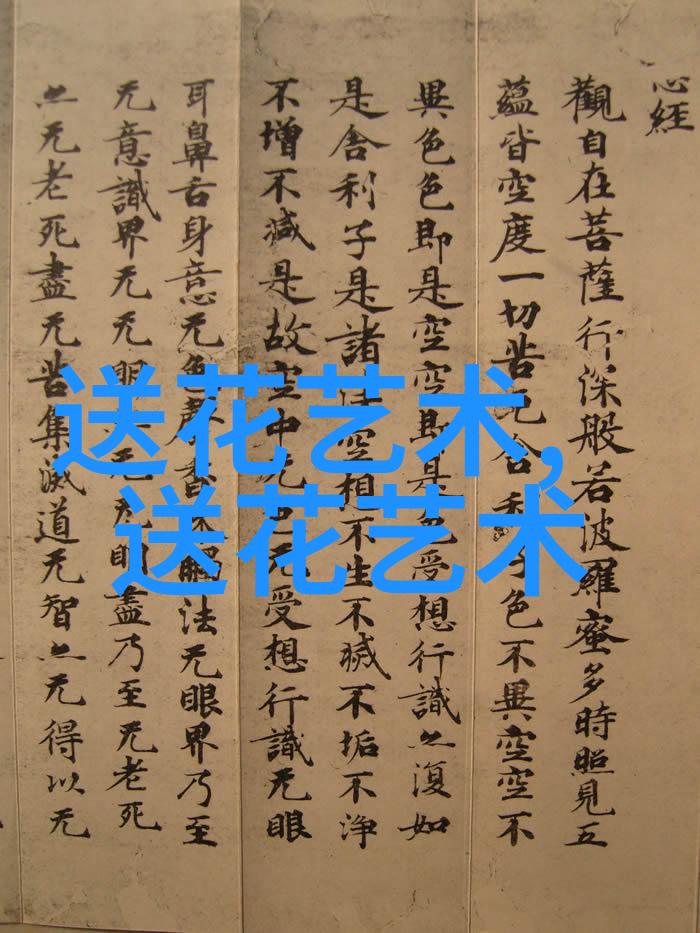 心經
觀自在菩薩行深般若波羅蜜多時照見五
蘊皆空度一切苦厄舍利子色不異空空不
異色色即是空空即是色受想行識亦復如
是舍利子是諸法空相不生不滅不垢不淨
不增不減是故空中无色无受想行識无眼
耳鼻舌身意无色聲香味觸法无眼界乃至
无意識界无无明亦无无明盡乃至无老死
亦无老死盡无苦集滅道无智亦无得以无
送花艺术,
送花艺术